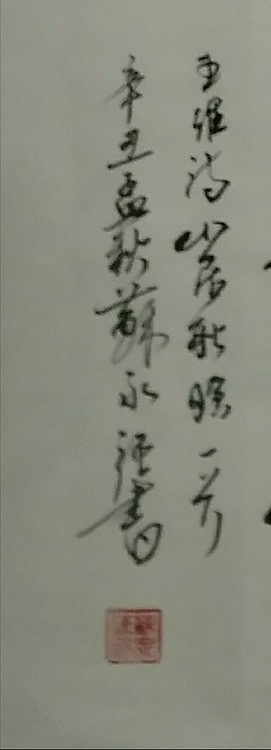 王維詩山居秋暝一首
辛丑孟秋蘇永書